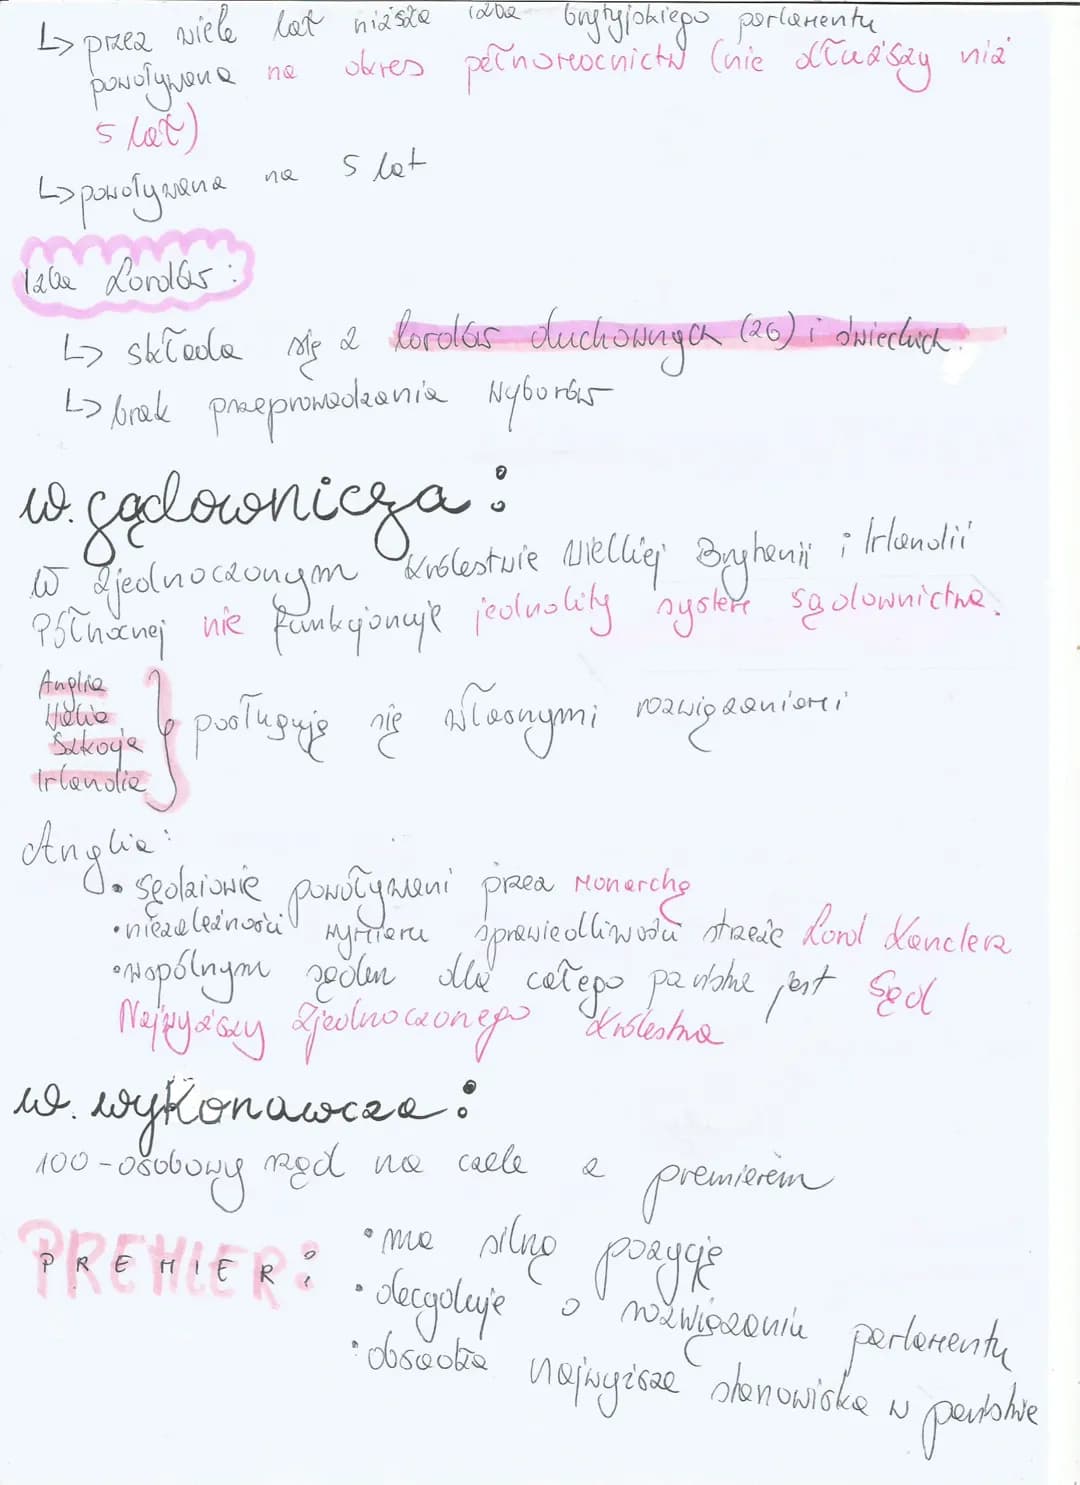 ↳ przez wiele lat niższa izba brytyjskiego parlamentu
powoływana na okres pełnomocnictw (nie dłuższy niż
5 lat)
↳ powoływana na 5 lat
Izba Lordów:
↳ składa się z lordów duchownych (26) i świeckich.
↳ brak przeprowadzania wyborów
w. sądownicza:
W Zjednoczonym Królestwie Wielkiej Brytanii i Irlandii
Północnej nie funkcjonuje jednolity system sądownictwa.
Anglia
Walia
Szkocja
Irlandia
} posługują się własnymi rozwiązaniami
Anglia:
• sędziowie powoływani przez Monarchę
• niezależności wymiaru sprawiedliwości strzeże Lord Kanclerz
• wspólnym sądem dla całego państwa jest Sąd
Najwyższy Zjednoczonego Królestwa
w. wykonawcza:
100-osobowy rząd na czele z premierem
PREMIER:
• ma silną pozycję
• decyduje o rozwiązaniu parlamentu
• obsadza najwyższe stanowiska w państwie